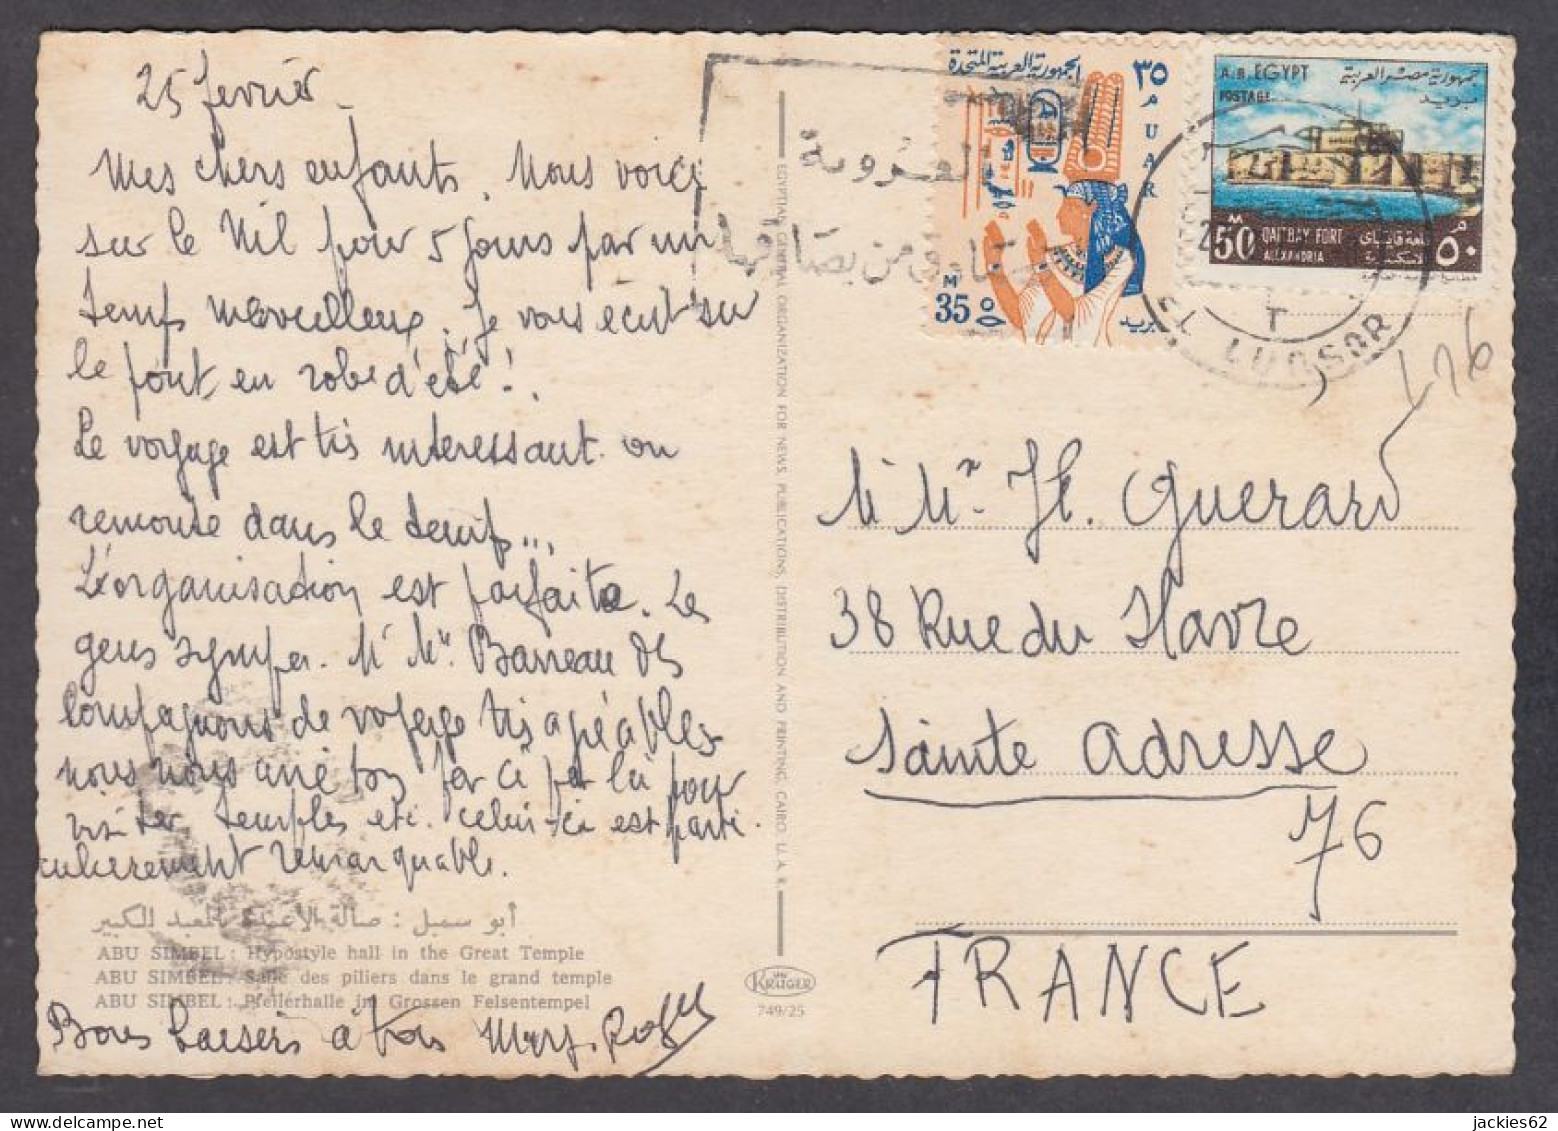 25 fevrier
Mes chers enfants. Nous voici
sur le Nil pour 5 jours par un
temps merveilleux. Je vous écrit sur
le pont en robe d'été !
Le voyage est très interessant. on
remonte dans le temps...
L'organisation est parfaite. Les
gens sympa. M Mme Barreau des
Compagnons de voyage très agréables
nous nous arrêtons par ci par là pour
visiter temples etc. celui-ci est parti-
culierement remarquable.
أبو سمبل : صالة الأعمدة بالمعبد الكبير
ABU SIMBEL : Hypostyle hall in the Great Temple
ABU SIMBEL : Salle des piliers dans le grand temple
ABU SIMBEL : Pfeilerhalle im Grossen Felsentempel
Bons baisers à tous
EGYPTIAN GENERAL ORGANIZATION FOR NEWS, PUBLICATIONS, DISTRIBUTION AND PRINTING, CAIRO, U. A. R.
KRÜGER
749/25
العروبة
الجمهورية العربية المتحدة
٣٥
م
UAR
M
35
بريد
A.R. EGYPT
POSTAGE
جمهورية مصر العربية
بريد
M
50
QAITBAY FORT
ALEXANDRIA
قلعة قايتباى
الاسكندرية
م
٥٠
T
EL LUQSOR
M Mr. H. Guerard
38 Rue du Havre
Sainte Adresse
76
FRANCE
jackies62